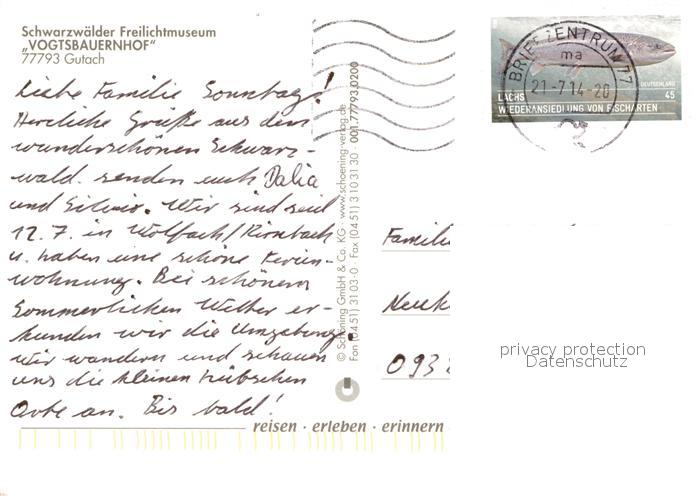 Schwarzwälder Freilichtmuseum
„VOGTSBAUERNHOF"
77793 Gutach
Liebe Familie Sonntag!
Herzliche Grüße aus dem
wunderschönen Schwarz-
wald senden euch Dalia
und Silvio. Wir sind seit
12.7. in Wolfach/Kirnbach
u. haben eine schöne Ferien-
wohnung. Bei schönem
Sommerlichen Wetter er-
kunden wir die Umgebung.
Wir wandern und schauen
uns die kleinen hübschen
Orte an. Bis bald!
reisen · erleben · erinnern
© Schöning GmbH & Co. KG · www.schoening-verlag.de
Fon (0451) 3103-0 · Fax (0451) 3103130 · 001 77793 0200
BRIEFZENTRUM 77
ma
21-7.14-20
DEUTSCHLAND
LACHS 45
WIEDERANSIEDLUNG VON FISCHARTEN
Famili
Neuk
093
privacy protection
Datenschutz